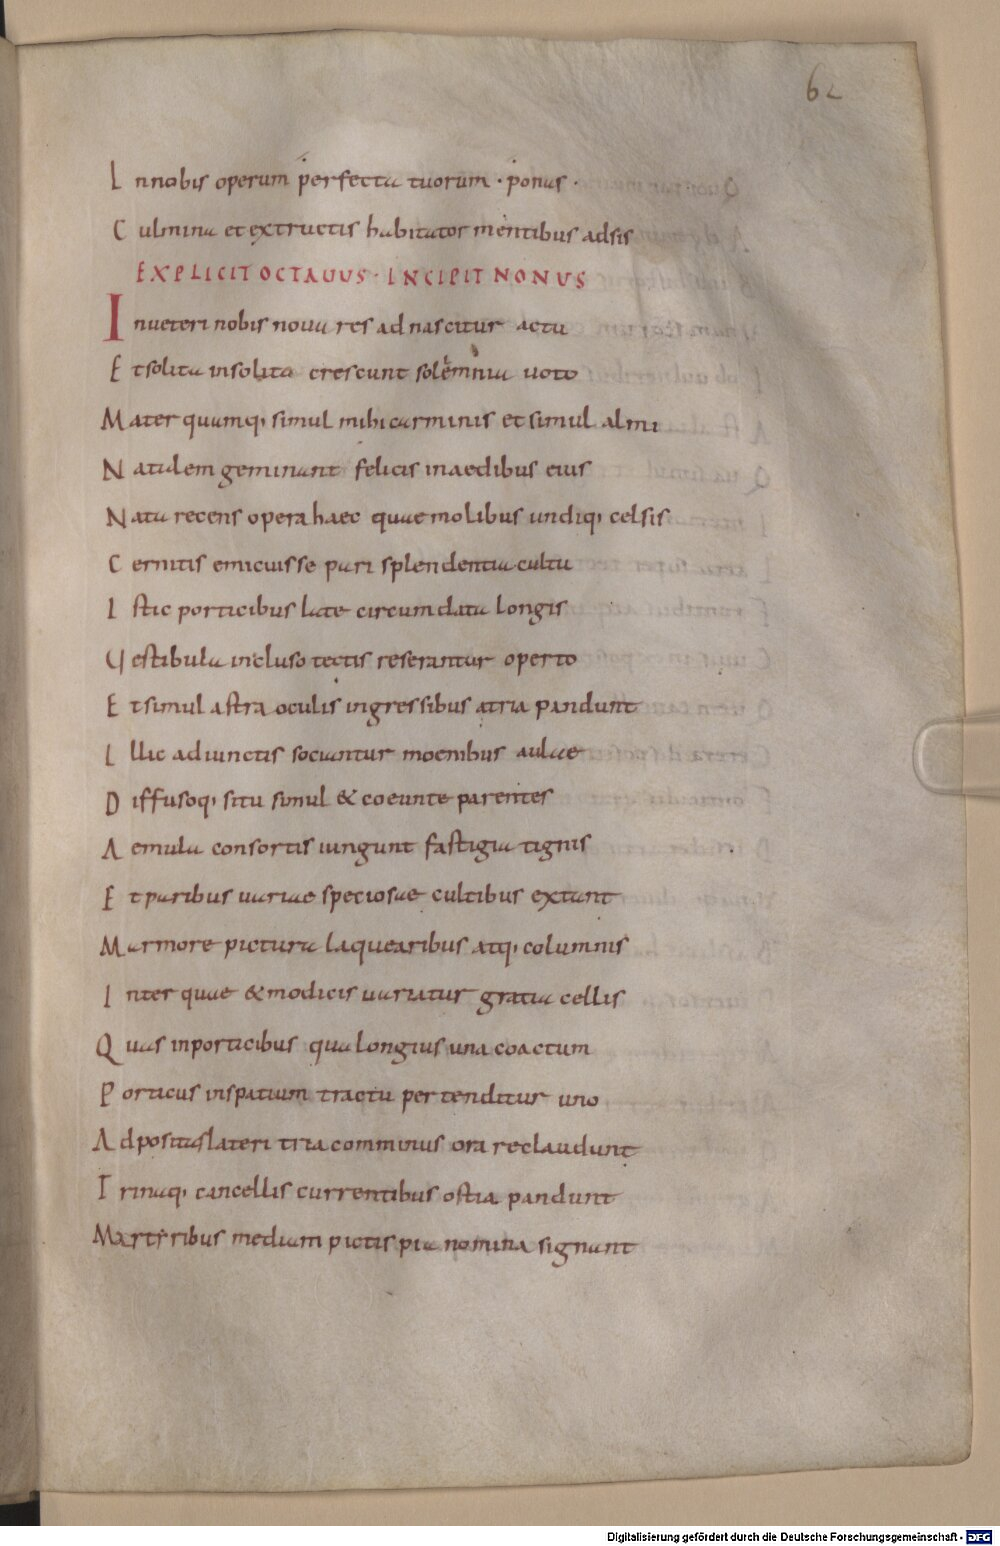 62
I nnobis operum perfecta tuorum · ponas ·
C ulmina et extructis habitator mentibus adsis
EXPLICIT OCTAUUS · INCIPIT NONUS
I nueteri nobis noua res adnascitur actu
E tsolita insolita crescunt solemnia uoto
M ater quamq; simul mihi carminis et simul almi
N atalem geminant felicis inaedibus eius
N ata recens opera haec quae molibus undiq; celsis
C ernitis emicuisse pari splendentia cultu
I stic porticibus late circumdata longis
U estibula incluso tectis reserantur operto
E tsimul astra oculis ingressibus atria pandunt
I llic adiunctis sociantur moenibus aulae
D iffusoq; situ simul & coeunte parentes
A emula consortis iungunt fastigia tignis
E t paribus uariae speciosae cultibus extant
M armore pictura laquearibus atq; columnis
I nter quae & modicis uariatur gratia cellis
Q uas inporticibus qua longius una coactum
P orticus inspatium tractu pertenditur uno
A dpositas lateri tria comminus ora recludunt
T rinaq; cancellis currentibus ostia pandunt
M artyribus medium pictis pia nomina signant
Digitalisierung gefördert durch die Deutsche Forschungsgemeinschaft - DFG